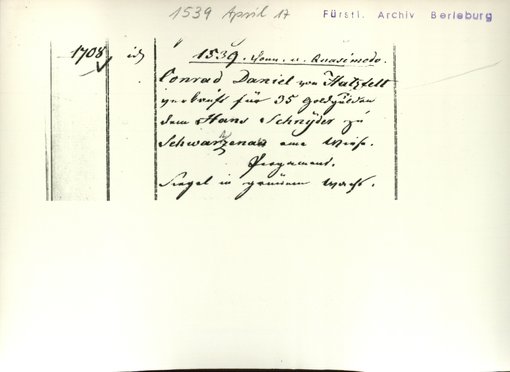 1539 April 17
Fürstl. Archiv Berleburg
1708 id
1539. Donn. n. Quasimodo.
Conrad Daniel von Hatzfelt
verkauft für 35 Goldgülden
dem Hans Schnÿder zu
Schwarzenau eine Wiese.
Pergament.
Siegel in grünem Wachs.